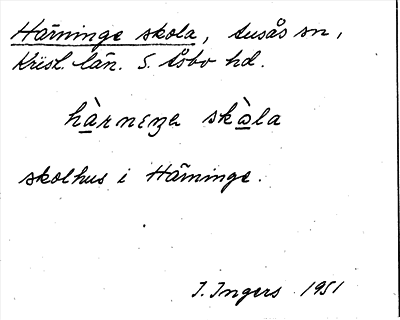 Härninge skola, Ausås sn,
Krist. län. S. Åsbo hd.
hàrnɛŋə skàla
skolhus i Härninge.
I. Ingers 1951